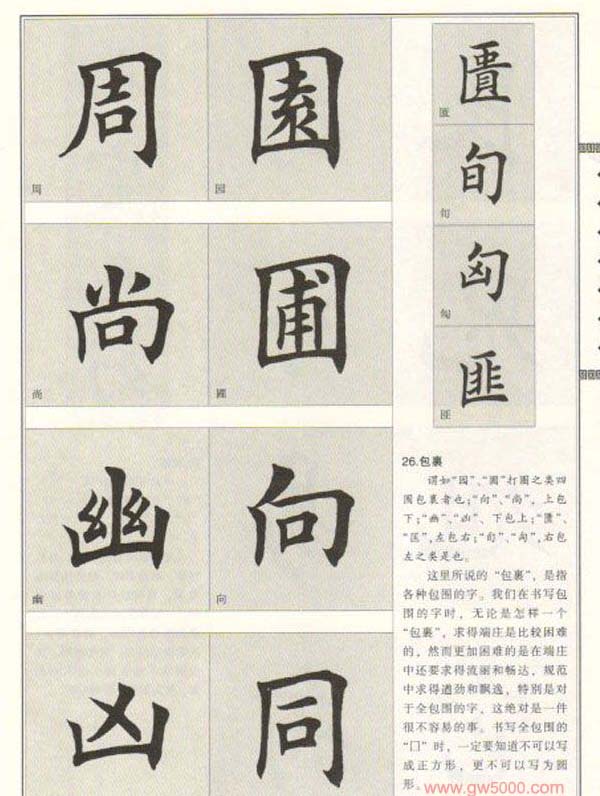 周
園
周
园
尚
圃
尚
圃
幽
向
幽
向
凶
同
匱
旬
旬
匈
匈
匪
匪
26.包裹
谓如“园”、“圃”打圈之类四
围包裹者也;“向”、“尚”,上包
下;“幽”、“凶”、下包上;“匮”、
“匡”,左包右;“旬”、“匈”,右包
左之类是也。
这里所说的“包裹”,是指
各种包围的字。我们在书写包
围的字时,无论是怎样一个
“包裹”,求得端庄是比较困难
的,然而更加困难的是在端庄
中还要求得流丽和畅达,规范
中求得遒劲和飘逸,特别是对
于全包围的字,这绝对是一件
很不容易的事。书写全包围的
“冂”时,一定要知道不可以写
成正方形,更不可以写为圆
形。
www.gw5000.com